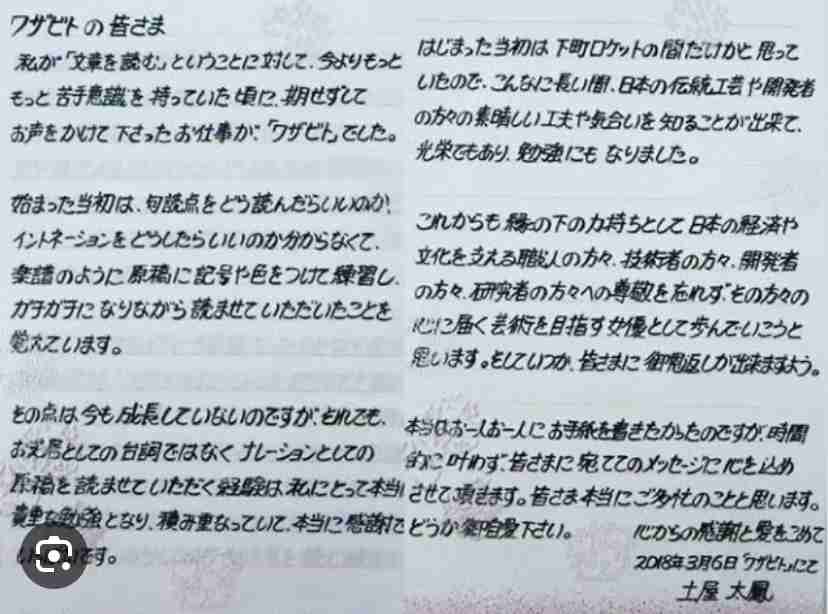 ワザビトの皆さま
私が「文章を読む」ということに対して、今よりもっと
もっと苦手意識を持っていた頃に、期せずして
お声をかけて下さったお仕事が、「ワザビト」でした。
始まった当初は、句読点をどう読んだらいいのか、
イントネーションをどうしたらいいのか分からなくて、
楽譜のように原稿に記号や色をつけて練習し、
ガチガチになりながら読ませていただいたことを
覚えています。
その点は今も成長していないのですが、それでも、
お芝居としての台詞ではなくナレーションとしての
原稿を読ませていただく経験は私にとって本当
貴重な勉強となり、積み重なっていて、本当に感謝で
です。
はじまった当初は下町ロケットの間だけかと思って
いたので、こんなに長い間、日本の伝統工芸や開発者
の方々の素晴しい工夫や気合いを知ることが出来て、
光栄でもあり、勉強にもなりました。
これからも縁の下の力持ちとして日本の経済や
文化を支える職人の方々、技術者の方々、開発者
の方々、研究者の方々への尊敬を忘れず、その方々の
心に届く芸術を目指す女優として歩んでいこうと
思います。そしていつか、皆さまに御恩返しが出来ますよう。
本当はお一人お一人にお手紙を書きたかったのですが、時間
的に叶わず、皆さまに宛ててのメッセージに心を込め
させて頂きます。皆さま本当にご多忙のことと思います。
どうか御自愛下さい。
心からの感謝と愛をこめて
2018年3月6日「ワザビト」にて
土屋 太鳳